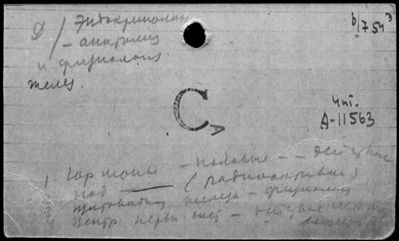 D / Эндокринолог
– анатомия
и физиология
желез.
b/754³
C A
Чит.
А-11563
1. Гормоны – половые – – действие
2. Йод – (радиоактивный)
щитовидная железа – физиология
Центр. нервн. сист – действие